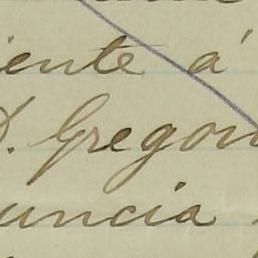 iente á
D. Gregori
uncia